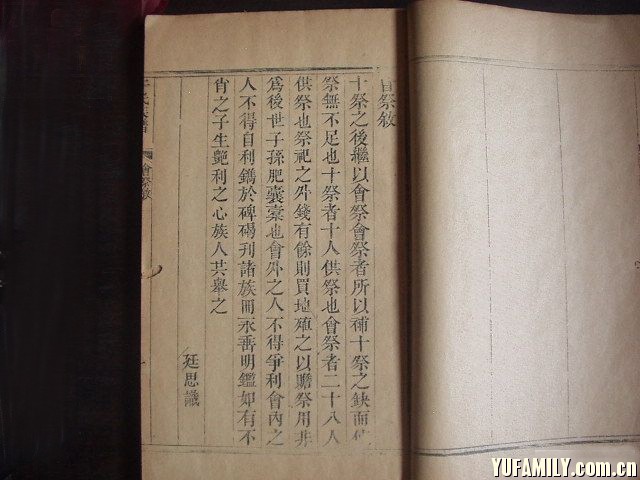 會祭敘
十祭之後繼以會祭會祭者所以補十祭之缺而使
祭無不足也十祭者十人供祭也會祭者二十八人
供祭也祭祀之外錢有餘則買地殖之以贍祭用非
為後世子孫肥囊橐也會外之人不得爭利會內之
人不得自利鐫於碑碣刊諸族冊永垂明鑑如有不
肖之子生艷利之心族人共舉之
廷思識
氏族譜
會祭敘
YUFAMILY.com.cn